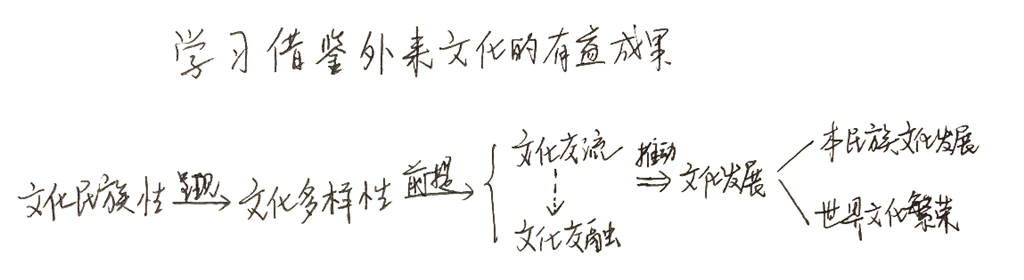 学习借鉴外来文化的有益成果
文化交流 推动 本民族文化发展
文化民族性 呈现 文化多样性 前提 文化发展
文化交融 世界文化繁荣